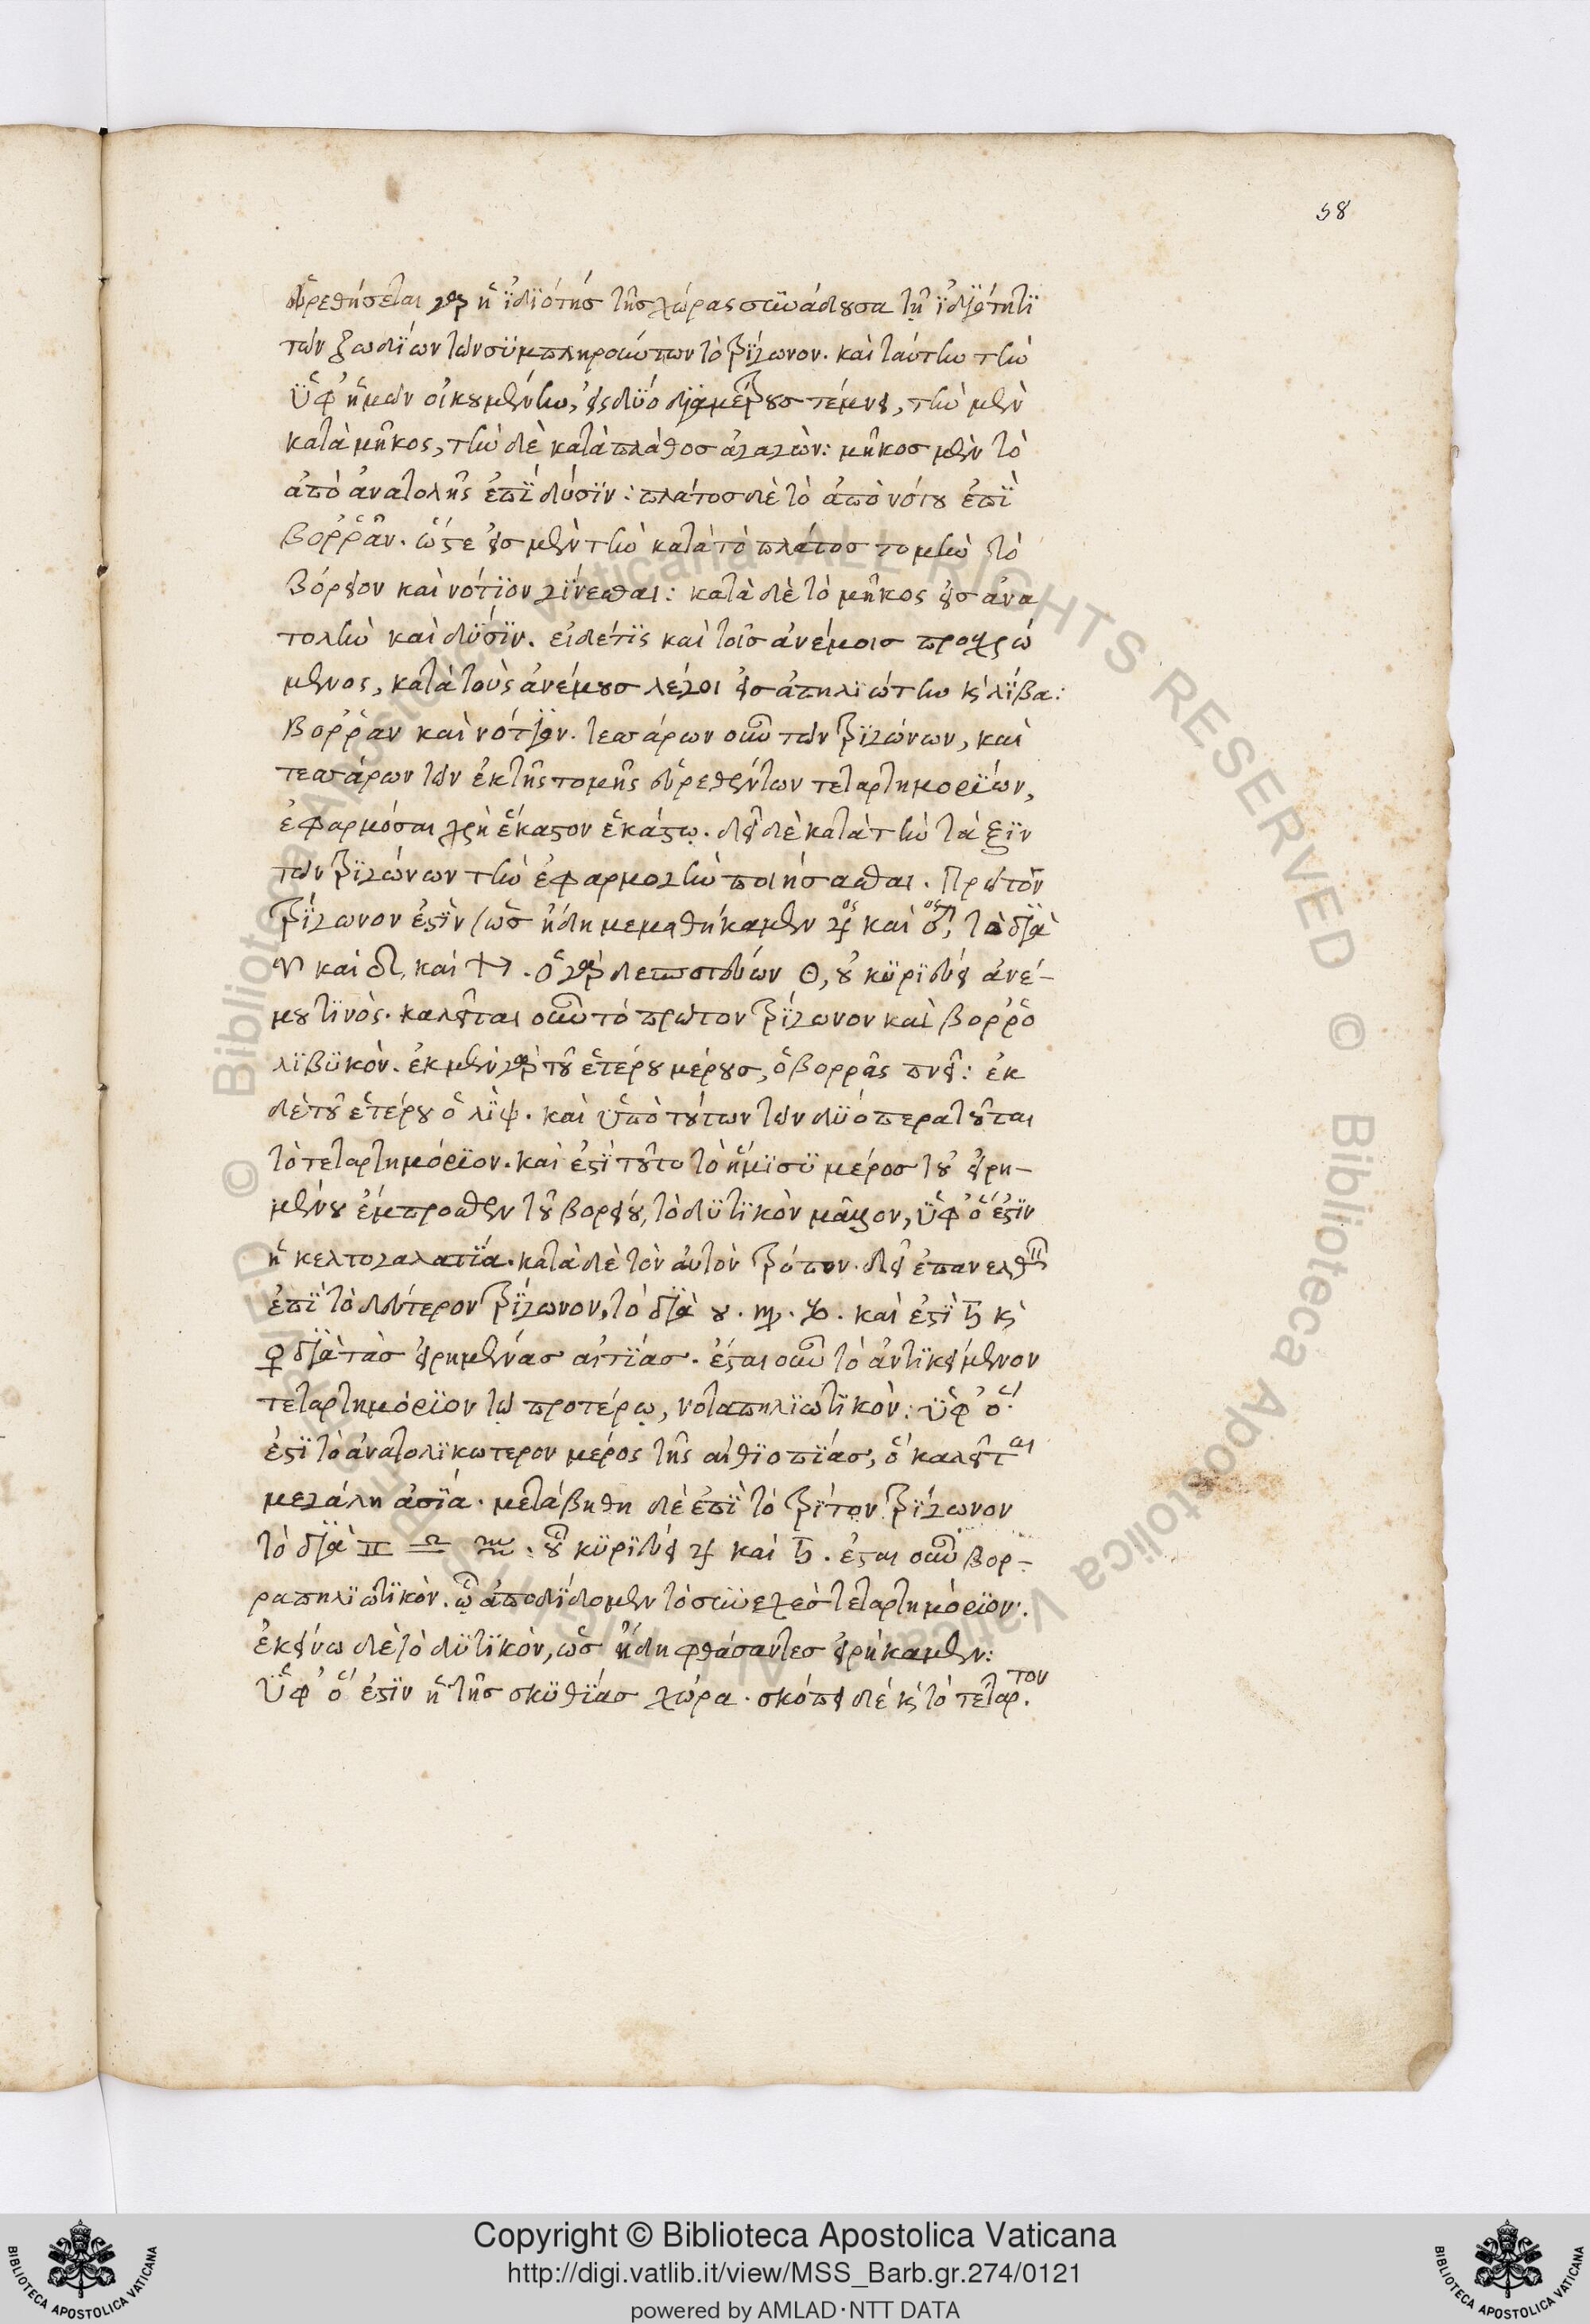 58
εὑρεθήσεται γὰρ ἡ ἰδιότης τῆς χώρας συνάδουσα τῇ ἰδιότητι
τῶν ζωδίων τῶν συμπληρούντων τὸ τρίγωνον. καὶ ταύτην τὴν
ὑφ' ἡμῶν οἰκουμένην, εἰς δύο διαμέτρους τέμνει, τὴν μὲν
κατὰ μῆκος, τὴν δὲ κατὰ πλάθος ἀγαγών: μῆκος μὲν τὸ
ἀπὸ ἀνατολῆς ἐπὶ δύσιν: πλάτος δὲ τὸ ἀπὸ νότου ἐπὶ
βορρᾶν. ὥστε εἰς μὲν τὴν κατὰ τὸ πλάτος τομὴν τὸ
βόρειον καὶ νότιον γίνεσθαι: κατὰ δὲ τὸ μῆκος εἰς ἀνα
τολὴν καὶ δύσιν. εἰ δέ τις καὶ τοῖς ἀνέμοις προσχρώ
μενος, κατὰ τοὺς ἀνέμους λέγοι εἰς ἀπηλιώτην κ λίβα:
βορρᾶν καὶ νότιον. τεσσάρων οὖν τῶν τριγώνων, καὶ
τεσσάρων τῶν ἐκ τῆς τομῆς εὑρεθέντων τεταρτημορίων,
ἐφαρμόσαι χρὴ ἕκαστον ἑκάστῳ. δεῖ δὲ κατὰ τὴν τάξιν
τῶν τριγώνων τὴν ἐφαρμογὴν ποιήσασθαι. Πρῶτον
τρίγωνον ἐστὶν (ὡς ἤδη μεμαθήκαμεν ♃ος καὶ ♂ος, τὸ διὰ
♈ καὶ ♌ καὶ ♐. ὁ γὰρ δεσποτεύων Θ, οὐ κυριεύει ἀνέ-
μου τινός. καλεῖται οὖν τὸ πρῶτον τρίγωνον καὶ βορρο
λιβυκόν. ἐκ μὲν γὰρ τοῦ ἑτέρου μέρους, ὁ βορρᾶς πνεῖ: ἐκ
δὲ τοῦ ἑτέρου ὁ λίψ. καὶ ὑπὸ τούτων τῶν δύο περατοῦται
τὸ τεταρτημόριον. καὶ ἐστὶ τοῦτο τὸ ἥμισυ μέρος τοῦ εἰρη-
μένου ἔμπροσθεν τοῦ βορείου, τὸ δυτικὸν μᾶλλον, ὑφ' ὅ ἐστιν
ἡ κελτογαλατία. κατὰ δὲ τὸν αὐτὸν τρόπον. δεῖ ἐπανελθεῖν
ἐπὶ τὸ δεύτερον τρίγωνον, τὸ διὰ ♉. ♍. ♑. καὶ ἐστὶ ♄ κ
♀ διὰ τὰς εἰρημένας αἰτίας. ἔσται οὖν τὸ ἀντικείμενον
τεταρτημόριον τῷ προτέρῳ, νοταπηλιωτικόν: ὑφ' ὅ
ἐστι τὸ ἀνατολικώτερον μέρος τῆς αἰθιοπίας, ὃ καλεῖται
μεγάλη ἀσία. μετάβηθι δὲ ἐπὶ τὸ τρίτον τρίγωνον
τὸ διὰ ♊ ♎ ♒. οὗ κυριεύει ♃ καὶ ♄. ἔσται οὖν βορ-
ραπηλιωτικόν. ᾧ ἀποδίδομεν τὸ συνεχὲς τεταρτημόριον.
ἐκείνῳ δὲ τὸ δυτικόν, ὡς ἤδη φθάσαντες εἰρήκαμεν:
ὑφ' ὅ ἐστιν ἡ τῆς σκυθίας χώρα. σκόπει δὲ κ τὸ τέταρτον.
© Biblioteca Apostolica Vaticana ALL RIGHTS RESERVED
Copyright © Biblioteca Apostolica Vaticana
http://digi.vatlib.it/view/MSS_Barb.gr.274/0121
powered by AMLAD·NTT DATA
BIBLIOTECA APOSTOLICA VATICANA
BIBLIOTECA APOSTOLICA VATICANA